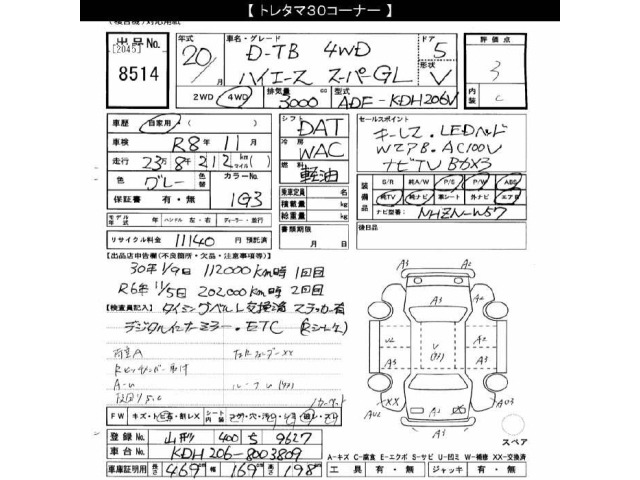 【トレタマ30コーナー】
(複合機)対応用紙
出品No.
[2045]
8514
年式
20/
月
車名・グレード
D-TB 4WD
ハイエース スーパーGL
ドア
5
形状
V
評価点
3
内装
C
2WD 4WD
排気量
3000 cc
型式
ADF-KDH206V
車歴 自家用( )
車検 R8年11月
走行 23万8千212 km マイル( )
色 グレー 色替
カラーNo. 1G3
保証書 有・無
モデル年式 年 ハンドル 左・右 ディーラー・並行
リサイクル料金 11140 円 預託済
シフト DAT
冷房 WAC
燃料 軽油
乗車定員
積載量 kg
総重量 kg
書類期限 月 日
セールスポイント
キーレス・LEDヘッド
WエアB・AC100V
ナビTV B6X3
装備品
S/R 純A/W P/S P/W ABS
純TV 純ナビ 革シート 外ナビ エアB
ナビ型番( NHZN-W57 )
後日品
【出品店申告欄(不良箇所・欠品・注意事項等)】
30年1/9日 112000km時 1回目
R6年11/5日 202,000km時 2回目
【検査員記入】タイミングベルト交換済 ステッカー有
デジタルインナーミラー・ETC
荷室A
A-U
FW キズ・ト
シート内装
登録No. 山形 400 ち 9627
車台No. KDH206-8003809
車庫証明用 長さ 469 幅 169 高さ 198
A3 A2
A3
A2
A3 A3
V
A2
XX
A02
A3
A03
スペア
A-キズ C-腐食 E-エクボ S-サビ U-凹ミ W-補修 XX-交換済
工具 有・無 ジャッキ 有・無